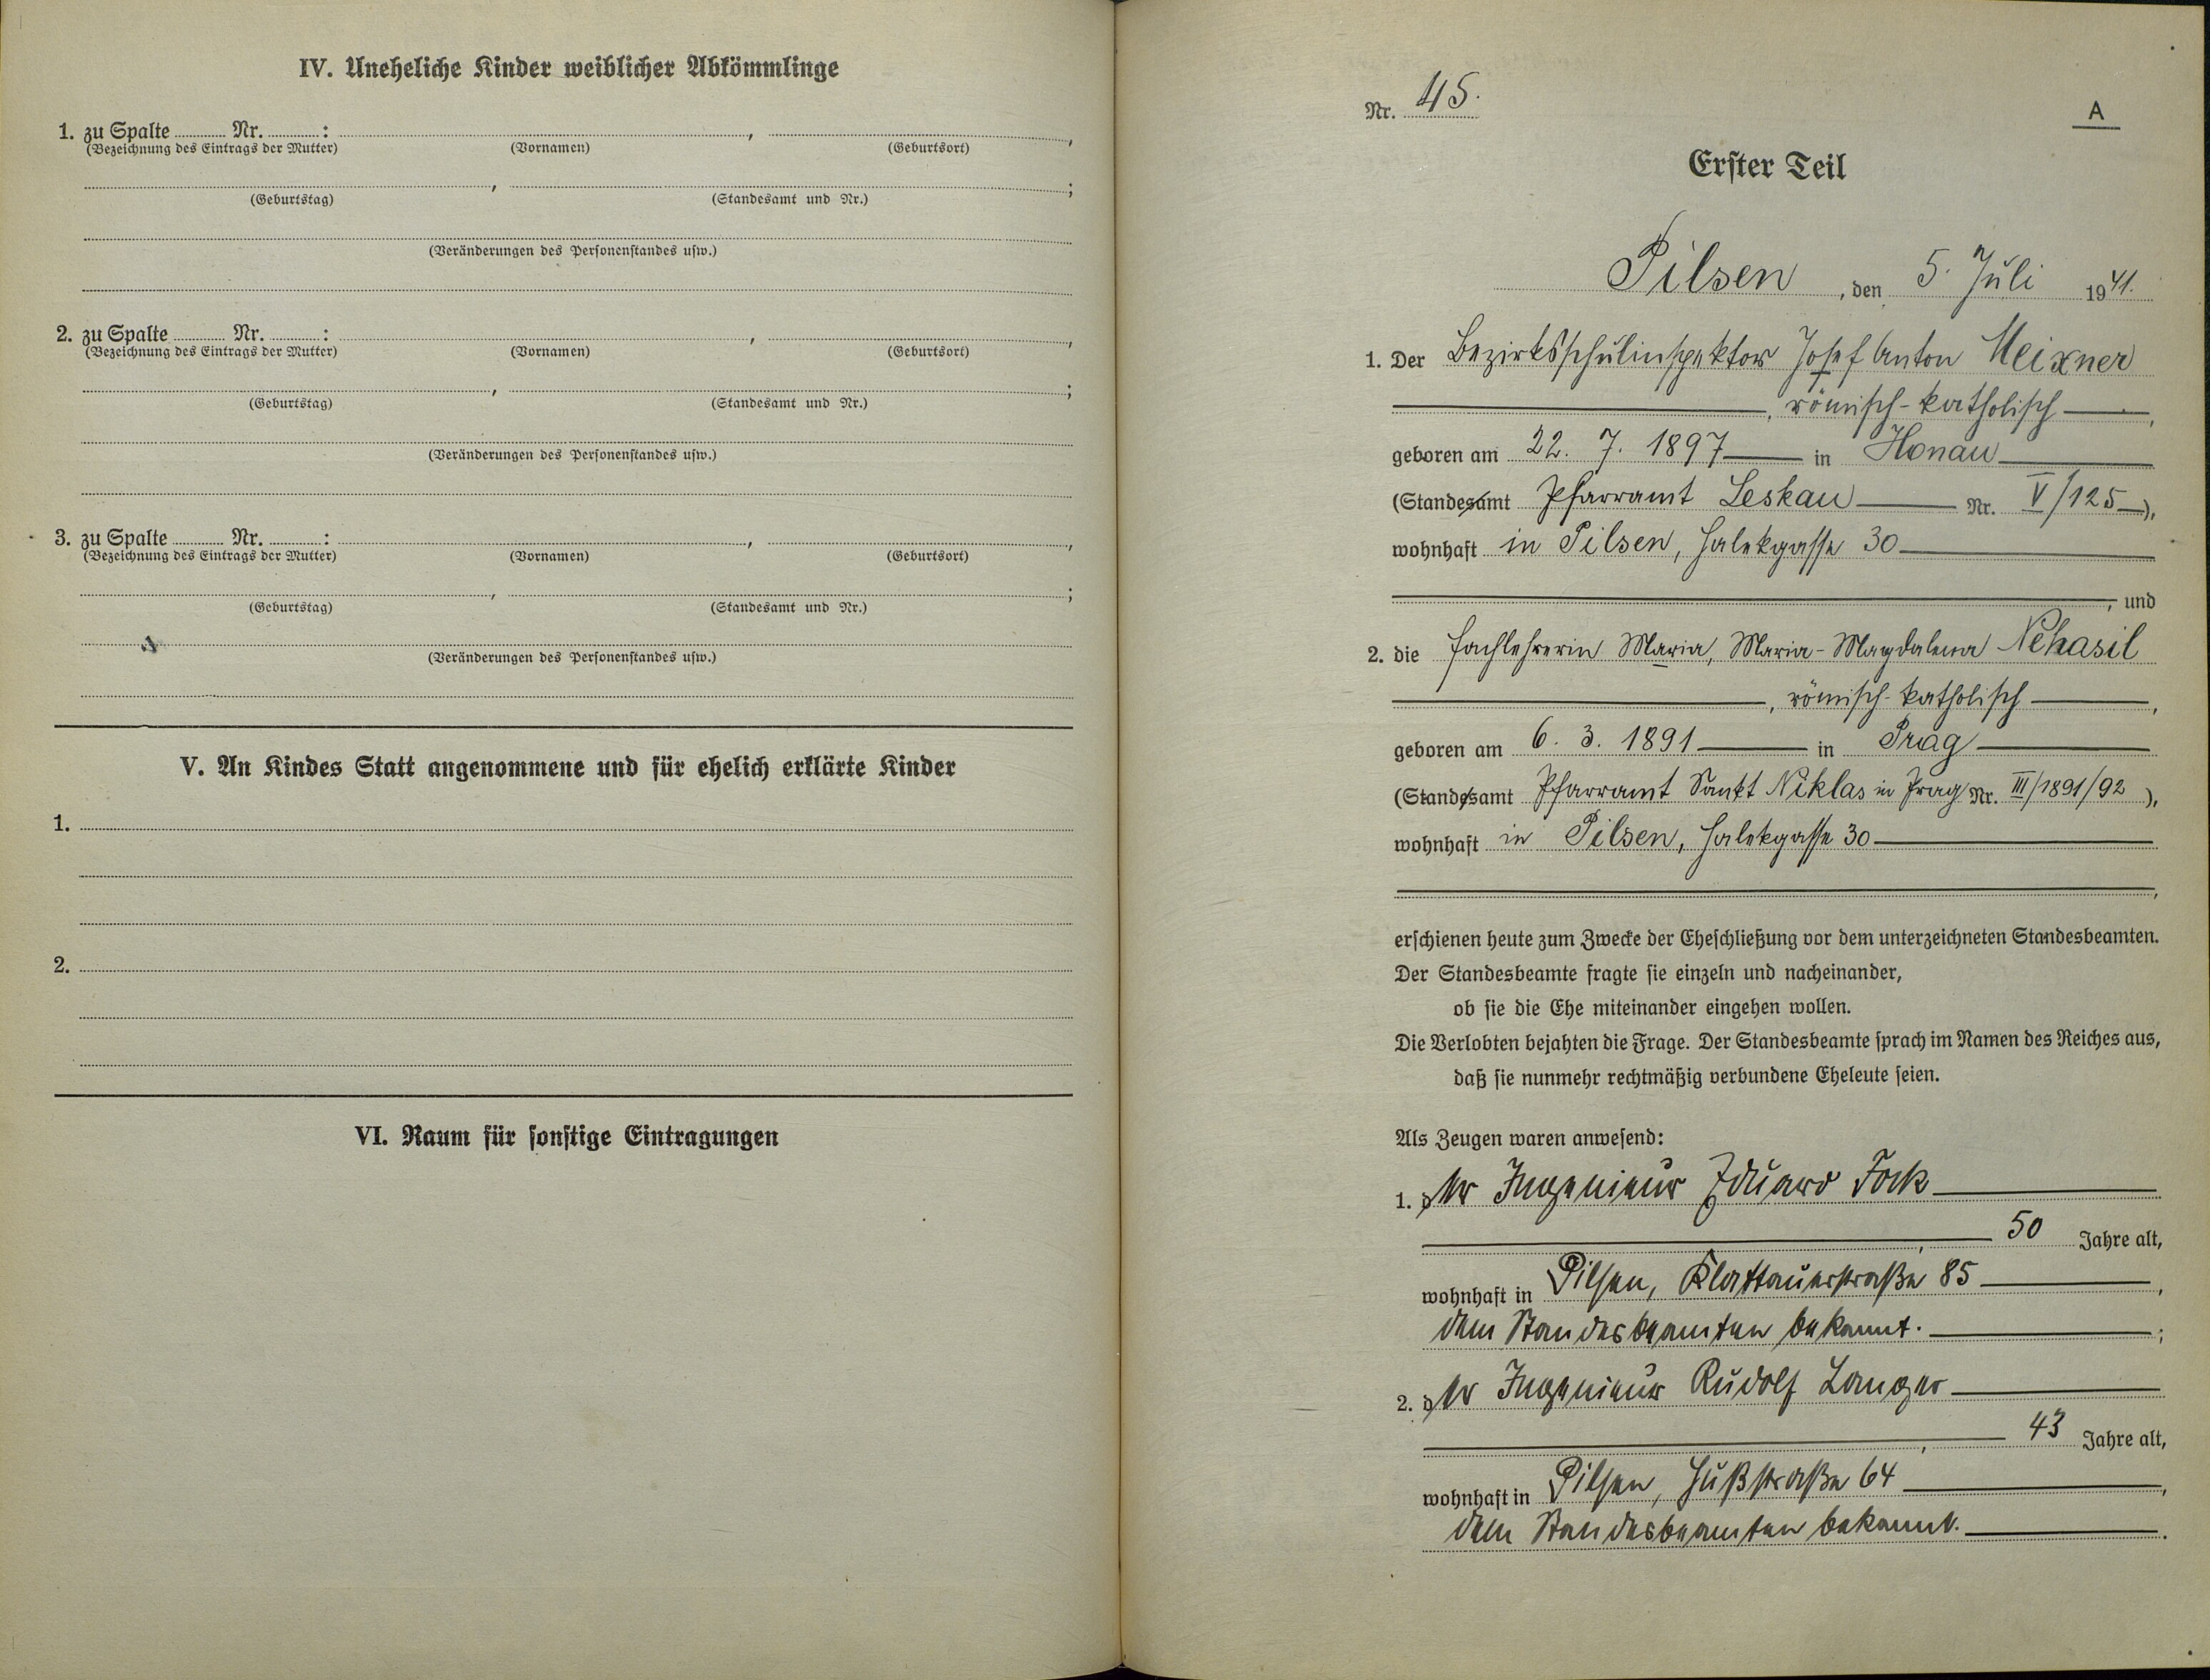 IV. Uneheliche Kinder weiblicher Abkömmlinge
1. zu Spalte ........ Nr. ........ : ........ , ........ ,
(Bezeichnung des Eintrags der Mutter) (Vornamen) (Geburtsort)
........ , ........ ;
(Geburtstag) (Standesamt und Nr.)
(Veränderungen des Personenstandes usw.)
2. zu Spalte ........ Nr. ........ : ........ , ........ ,
(Bezeichnung des Eintrags der Mutter) (Vornamen) (Geburtsort)
........ , ........ ;
(Geburtstag) (Standesamt und Nr.)
(Veränderungen des Personenstandes usw.)
3. zu Spalte ........ Nr. ........ : ........ , ........ ,
(Bezeichnung des Eintrags der Mutter) (Vornamen) (Geburtsort)
........ , ........ ;
(Geburtstag) (Standesamt und Nr.)
(Veränderungen des Personenstandes usw.)
V. An Kindes Statt angenommene und für ehelich erklärte Kinder
1.
2.
VI. Raum für sonstige Eintragungen
Nr. 45.
A
Erster Teil
Pilsen, den 5. Juli 1941.
1. Der Bezirksschulinspektor Josef Anton Meixner
, römisch-katholisch ,
geboren am 22. 7. 1897 in Honau
(Standesamt Pfarramt Leskau Nr. V/125),
wohnhaft in Pilsen, Halekgasse 30
, und
2. die Fachlehrerin Maria, Maria-Magdalena Nehasil
, römisch-katholisch ,
geboren am 6. 3. 1891 in Prag
(Standesamt Pfarramt Sankt Niklas in Prag Nr. III/1891/92),
wohnhaft in Pilsen, Halekgasse 30
,
erschienen heute zum Zwecke der Eheschließung vor dem unterzeichneten Standesbeamten.
Der Standesbeamte fragte sie einzeln und nacheinander,
ob sie die Ehe miteinander eingehen wollen.
Die Verlobten bejahten die Frage. Der Standesbeamte sprach im Namen des Reiches aus,
daß sie nunmehr rechtmäßig verbundene Eheleute seien.
Als Zeugen waren anwesend:
1. der Ingenieur Eduard Fock
, 50 Jahre alt,
wohnhaft in Pilsen, Klattauerstraße 85 ,
dem Standesbeamten bekannt. ;
2. der Ingenieur Rudolf Langer
, 43 Jahre alt,
wohnhaft in Pilsen, Hußstraße 64 ,
dem Standesbeamten bekannt. .